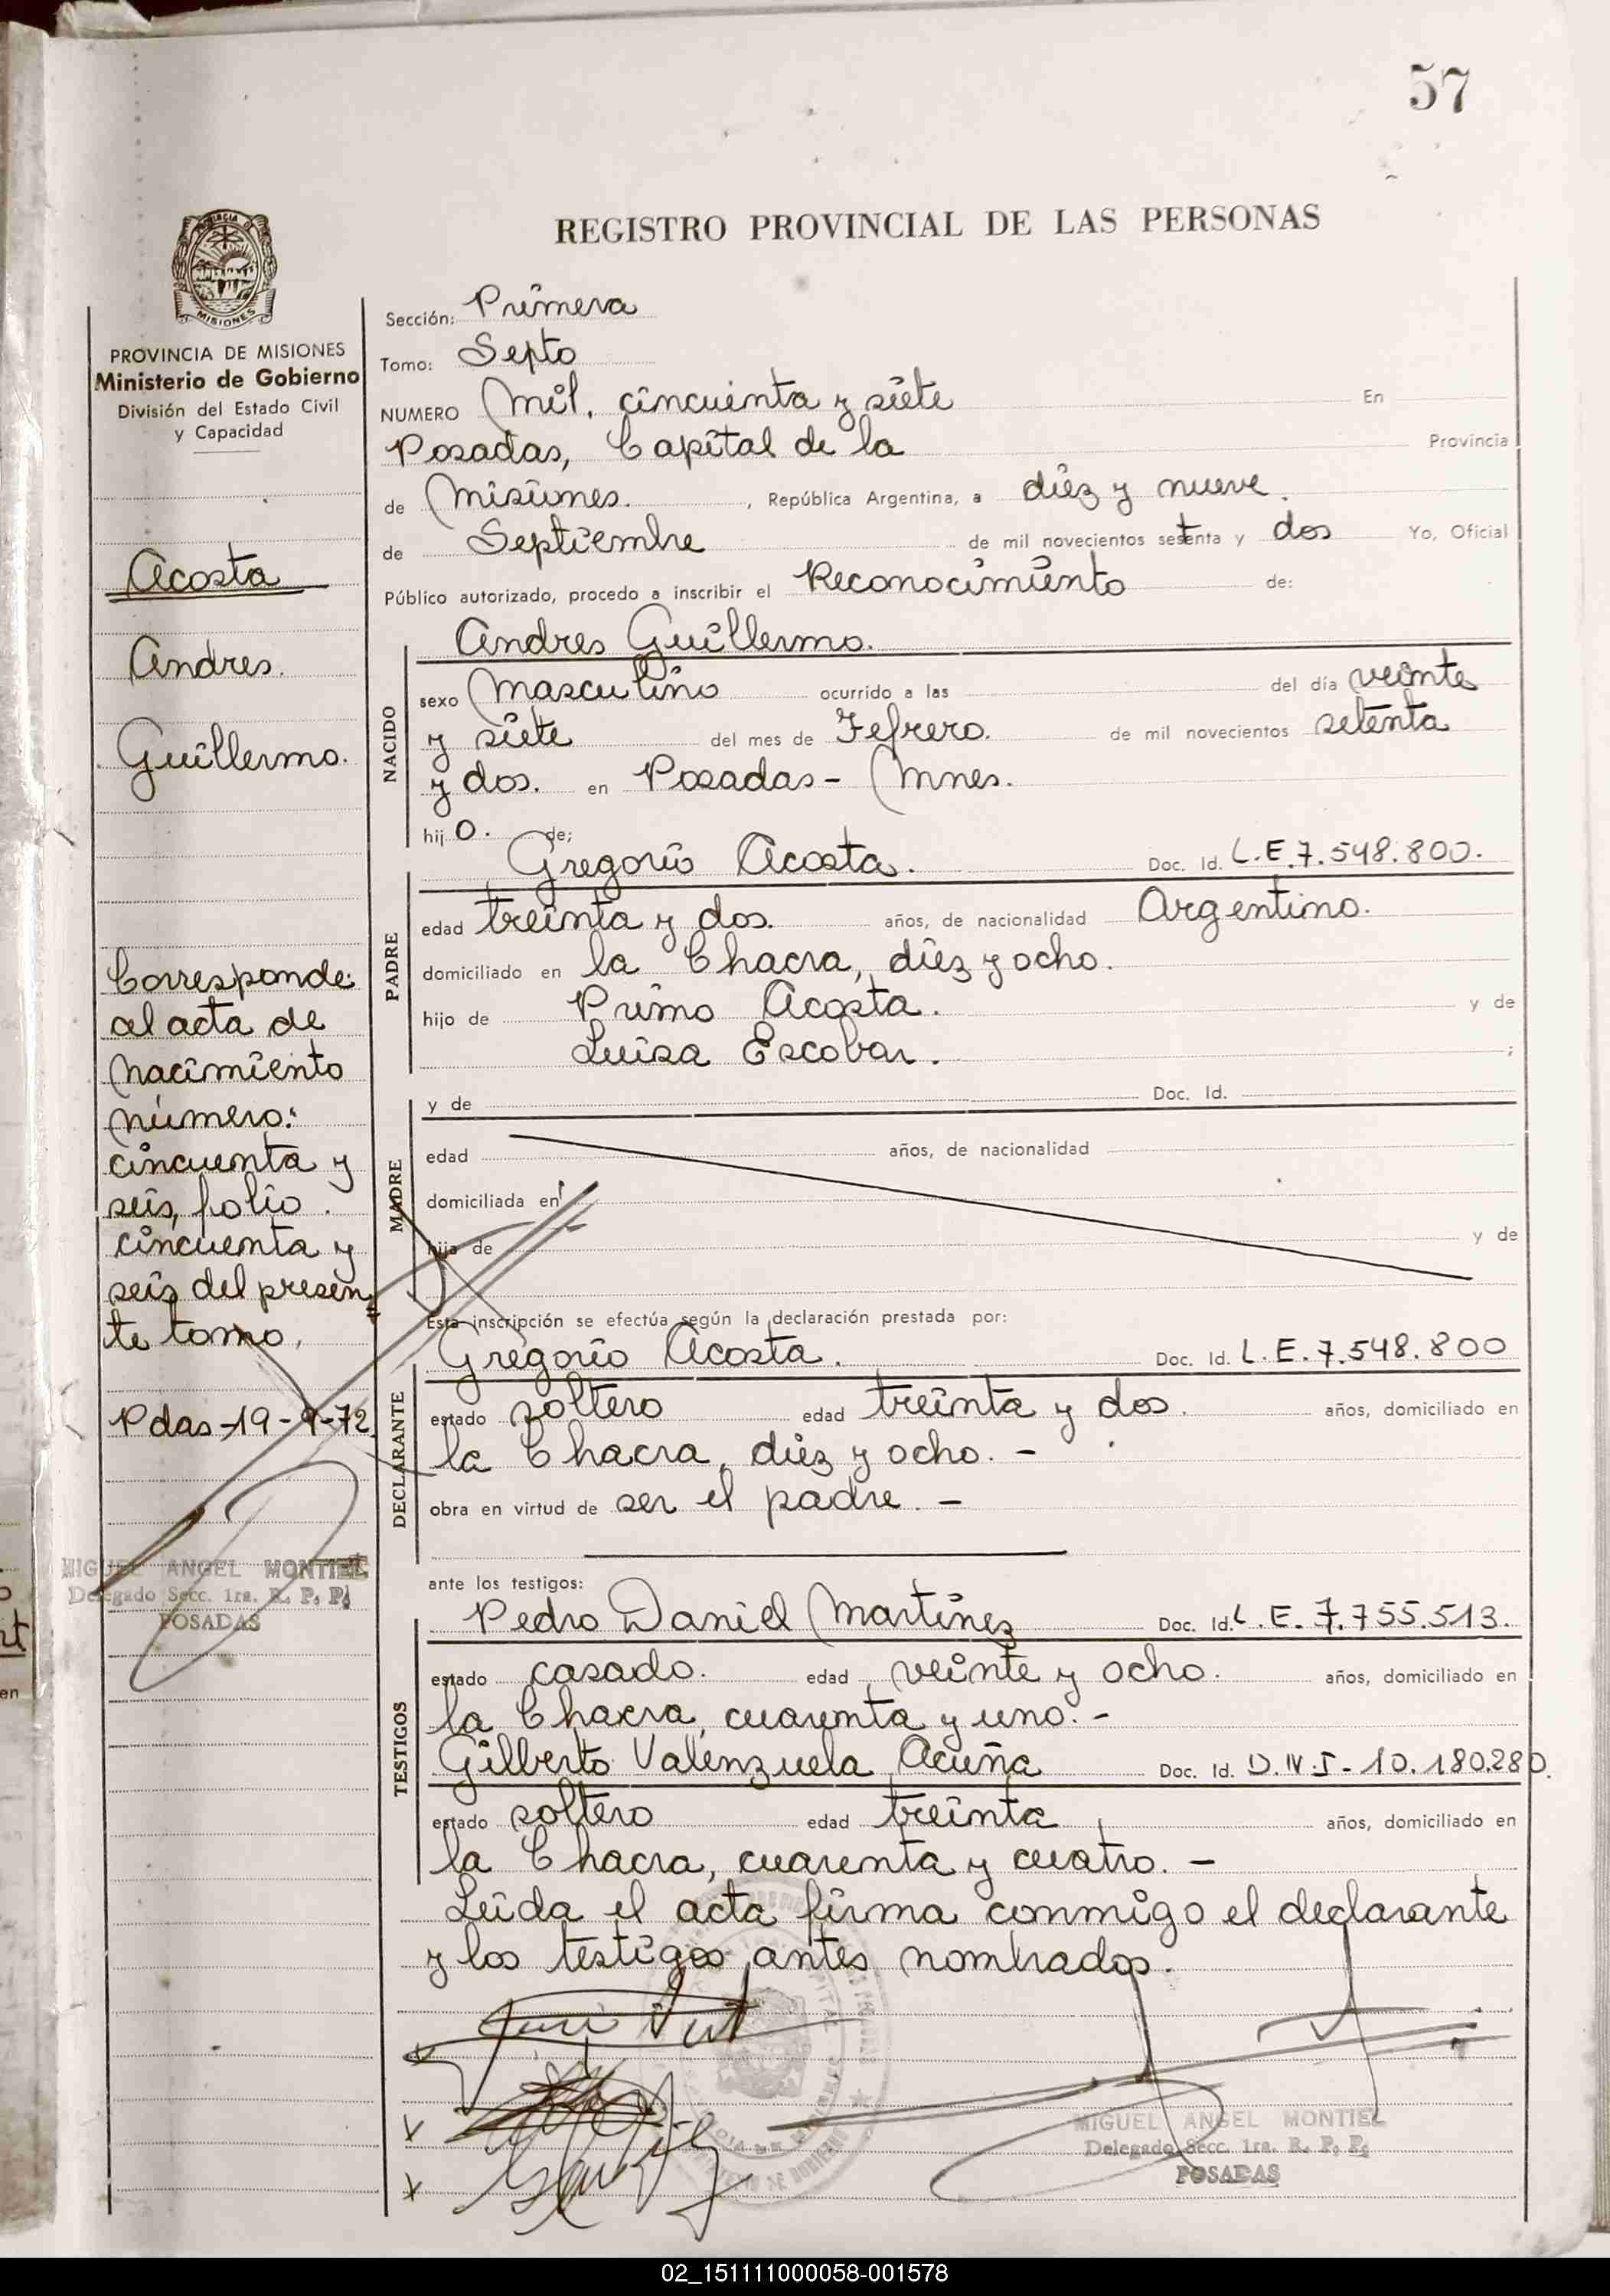 57
REGISTRO PROVINCIAL DE LAS PERSONAS
MISIONES
PROVINCIA DE MISIONES
Ministerio de Gobierno
División del Estado Civil
y Capacidad
Acosta
Andres.
Guillermo.
Corresponde
al acta de
Nacimiento
número:
cincuenta y
seis, folio
cincuenta y
seis del presen
te tomo.
Pdas-19-9-72
MIGUEL ANGEL MONTIEL
Delegado Secc. 1ra. R. P. P.
POSADAS
Sección: Primera
Tomo: Septo
NUMERO Mil, cincuenta y siete En
Posadas, Capital de la Provincia
de Misiones. , República Argentina, a diez y nueve.
de Septiembre de mil novecientos setenta y dos Yo, Oficial
Público autorizado, procedo a inscribir el Reconocimiento de:
NACIDO
Andres Guillermo.
sexo Masculino ocurrido a las del día veinte
y siete del mes de Febrero. de mil novecientos setenta
y dos. en Posadas- Mnes.
hij o. de;
PADRE
Gregorio Acosta. Doc. Id. L.E.7.548.800.
edad treinta y dos. años, de nacionalidad Argentino.
domiciliado en la Chacra, diez y ocho.
hijo de Primo Acosta. y de
Luisa Escobar. ;
MADRE
y de Doc. Id.
edad años, de nacionalidad
domiciliada en
hija de y de
Esta inscripción se efectúa según la declaración prestada por:
DECLARANTE
Gregorio Acosta. Doc. Id. L.E.7.548.800
estado soltero edad treinta y dos. años, domiciliado en
la Chacra, diez y ocho. -
obra en virtud de ser el padre. -
ante los testigos:
TESTIGOS
Pedro Daniel Martinez Doc. Id. L.E.7.755.513.
estado casado. edad veinte y ocho. años, domiciliado en
la Chacra, cuarenta y uno. -
Gilberto Valenzuela Acuña Doc. Id. D.N.I-10.180.280.
estado soltero edad treinta años, domiciliado en
la Chacra, cuarenta y cuatro. -
Leida el acta firma conmigo el declarante
y los testigos antes nombrados.
MIGUEL ANGEL MONTIEL
Delegado Secc. 1ra. R. P. P.
POSADAS
02_151111000058-001578